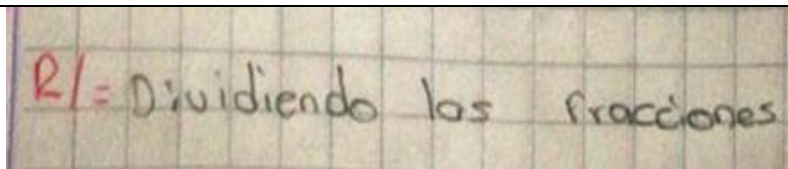 R/= Dividiendo las fracciones